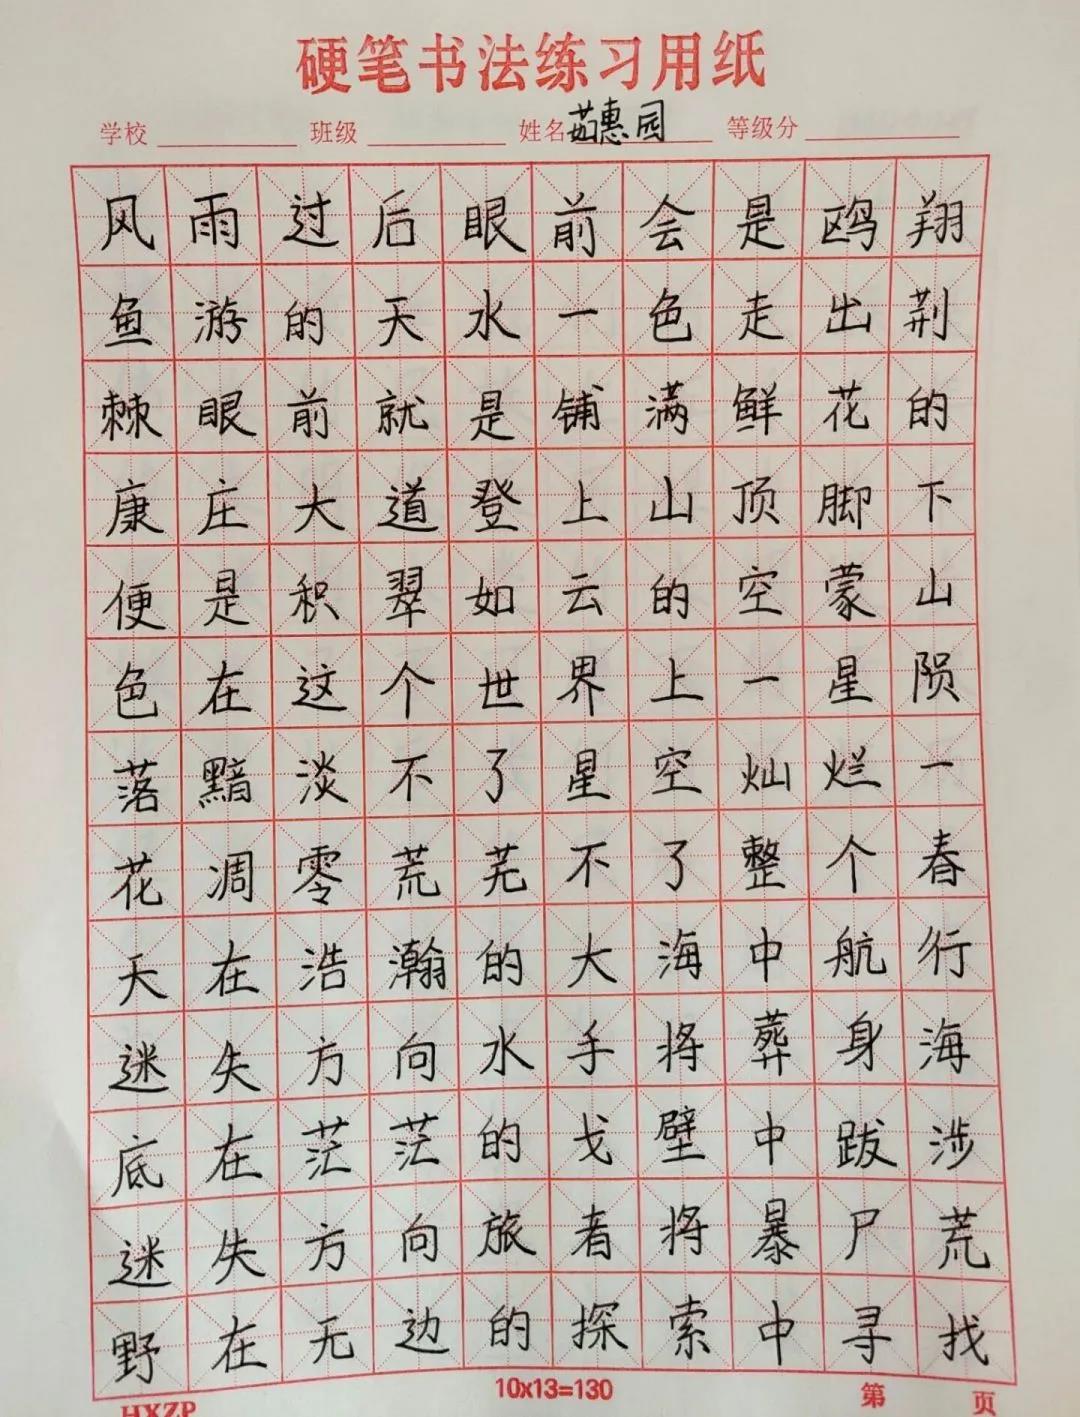 硬笔书法练习用纸
学校 班级 姓名茹惠园 等级分
风雨过后眼前会是鸥翔
鱼游的天水一色走出荆
棘眼前就是铺满鲜花的
康庄大道登上山顶脚下
便是积翠如云的空蒙山
色在这个世界上一星陨
落黯淡不了星空灿烂一
花凋零荒芜不了整个春
天在浩瀚的大海中航行
迷失方向水手将葬身海
底在茫茫的戈壁中跋涉
迷失方向旅者将暴尸荒
野在无边的探索中寻找
HXZP 10x13=130 第 页